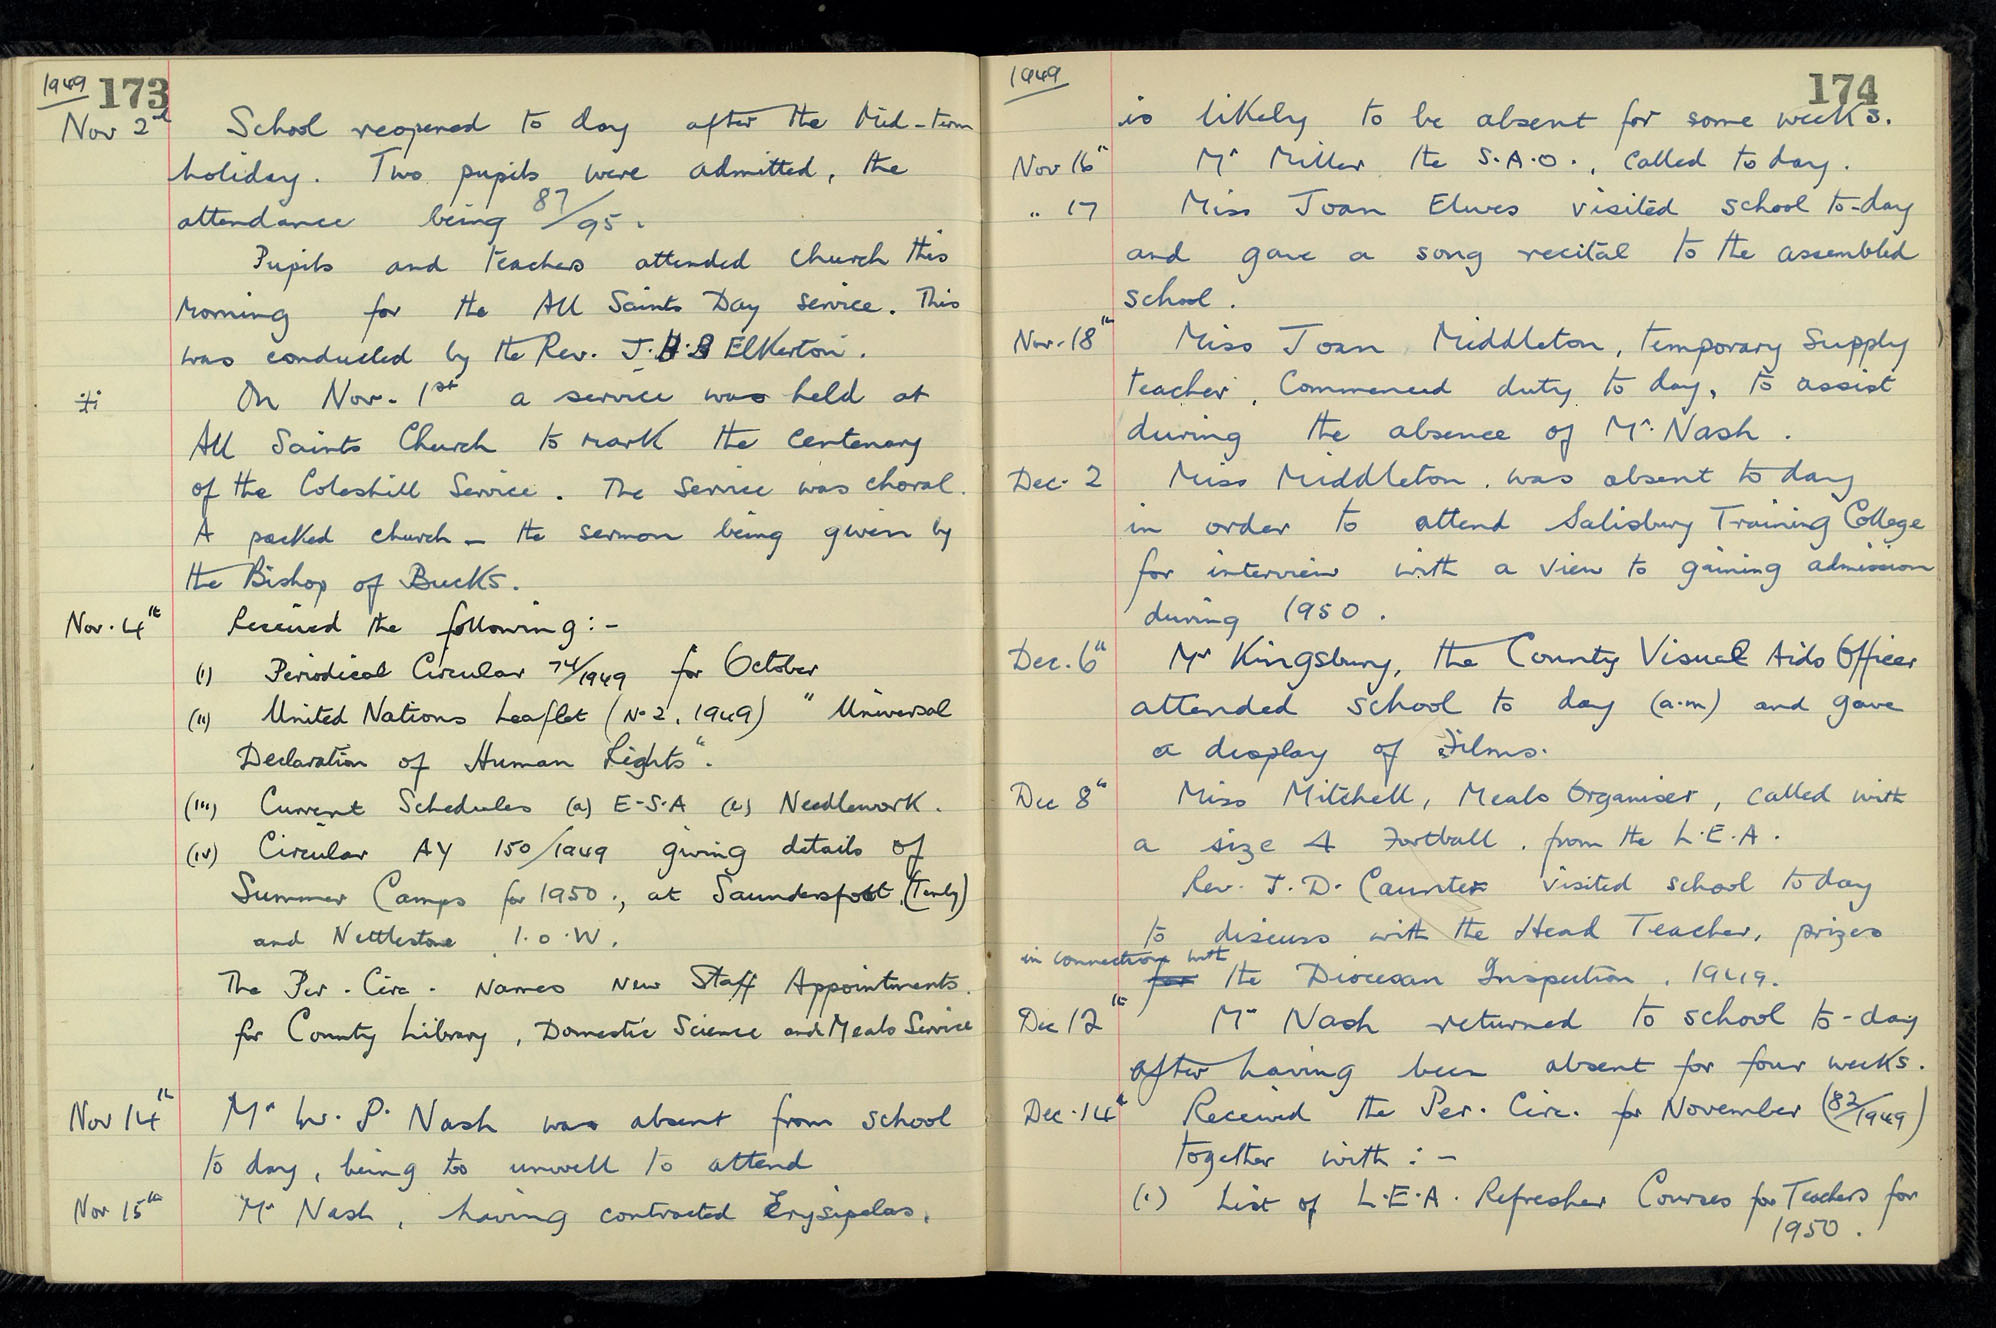 1949 173
Nov 2nd School reopened to day after the Mid-term
holiday. Two pupils were admitted, the
attendance being 87/95.
Pupils and teachers attended church this
morning for the All Saints Day service. This
was conducted by the Rev. J. Elkerton.
On Nov. 1st a service was held at
All Saints Church to mark the centenary
of the Coleshill Service. The service was choral.
A packed church – the sermon being given by
the Bishop of Bucks.
Nov. 4th Received the following:–
(i) Periodical Circular 74/1949 for October
(ii) United Nations Leaflet (No 2, 1949) "Universal
Declaration of Human Rights".
(iii) Current Schedules (a) E-S.A (b) Needlework.
(iv) Circular AY 150/1949 giving details of
Summer Camps for 1950., at Saundersfoot, (Tenby)
and Nettlestone I.O.W.
The Per. Circ. names new Staff Appointments
for County Library, Domestic Science and Meals Service
Nov 14th Mr W. P. Nash was absent from school
to day, being too unwell to attend
Nov 15th Mr Nash, having contracted Erysipelas,
1949 174
is likely to be absent for some weeks.
Nov 16th Mr Miller the S.A.O., called to day.
" 17 Miss Joan Elwes visited school to-day
and gave a song recital to the assembled
school.
Nov. 18th Miss Joan Middleton, temporary Supply
teacher, commenced duty to day, to assist
during the absence of Mr. Nash.
Dec. 2 Miss Middleton, was absent to day
in order to attend Salisbury Training College
for interview with a view to gaining admission
during 1950.
Dec. 6th Mr Kingsbury, the County Visual Aids Officer
attended school to day (a.m) and gave
a display of Films.
Dec 8th Miss Mitchell, Meals Organiser, called with
a size 4 Football, from the L.E.A.
Rev. J. D. Caunter visited school to day
to discuss with the Head Teacher, prizes
in connection with
for the Diocesan Inspection, 1949.
Dec 12th Mr Nash returned to school to-day
after having been absent for four weeks.
Dec. 14th Received the Per. Circ. for November (82/1949)
together with:–
(i) List of L.E.A. Refresher Courses for Teachers for
1950.